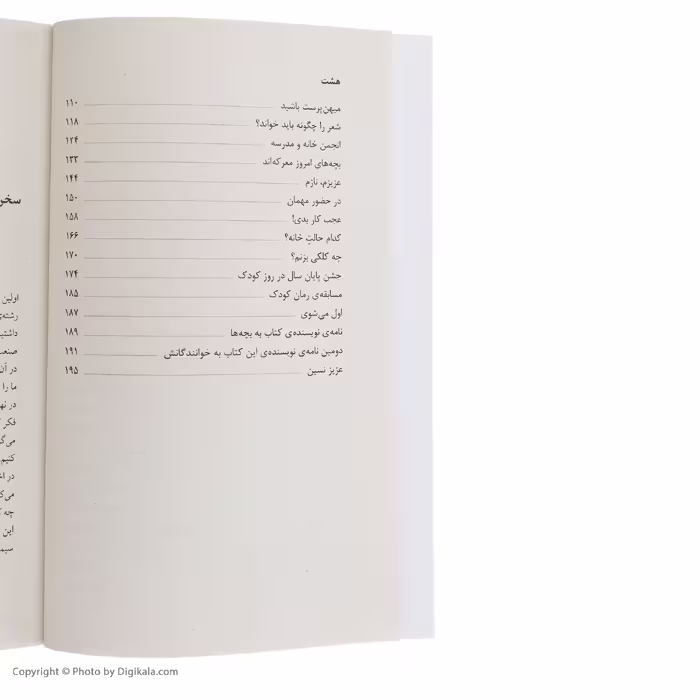 هشت
میهن‌پرست باشید ۱۱۰
شعر را چگونه باید خواند؟ ۱۱۸
انجمن خانه و مدرسه ۱۲۴
بچه‌های امروز معرکه‌اند ۱۳۳
عزیزم، نازم ۱۴۴
در حضور مهمان ۱۵۰
عجب کار بدی! ۱۵۸
کدام حالتِ خانه؟ ۱۶۶
چه کلکی بزنم؟ ۱۷۰
جشن پایان سال در روز کودک ۱۷۴
مسابقه‌ی رمان کودک ۱۸۵
اول می‌شوی ۱۸۷
نامه‌ی نویسنده‌ی کتاب به بچه‌ها ۱۸۹
دومین نامه‌ی نویسنده‌ی این کتاب به خوانندگانش ۱۹۱
عزیز نسین ۱۹۵
اولین
در آن
ما را
فکر
کنیم
این
Copyright © Photo by Digikala.com